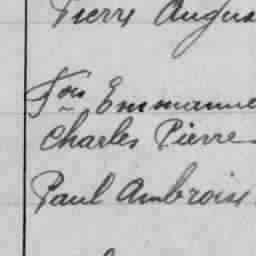 Pierre Augus
Fois Emmanue
Charles Pierre
Paul Ambroise